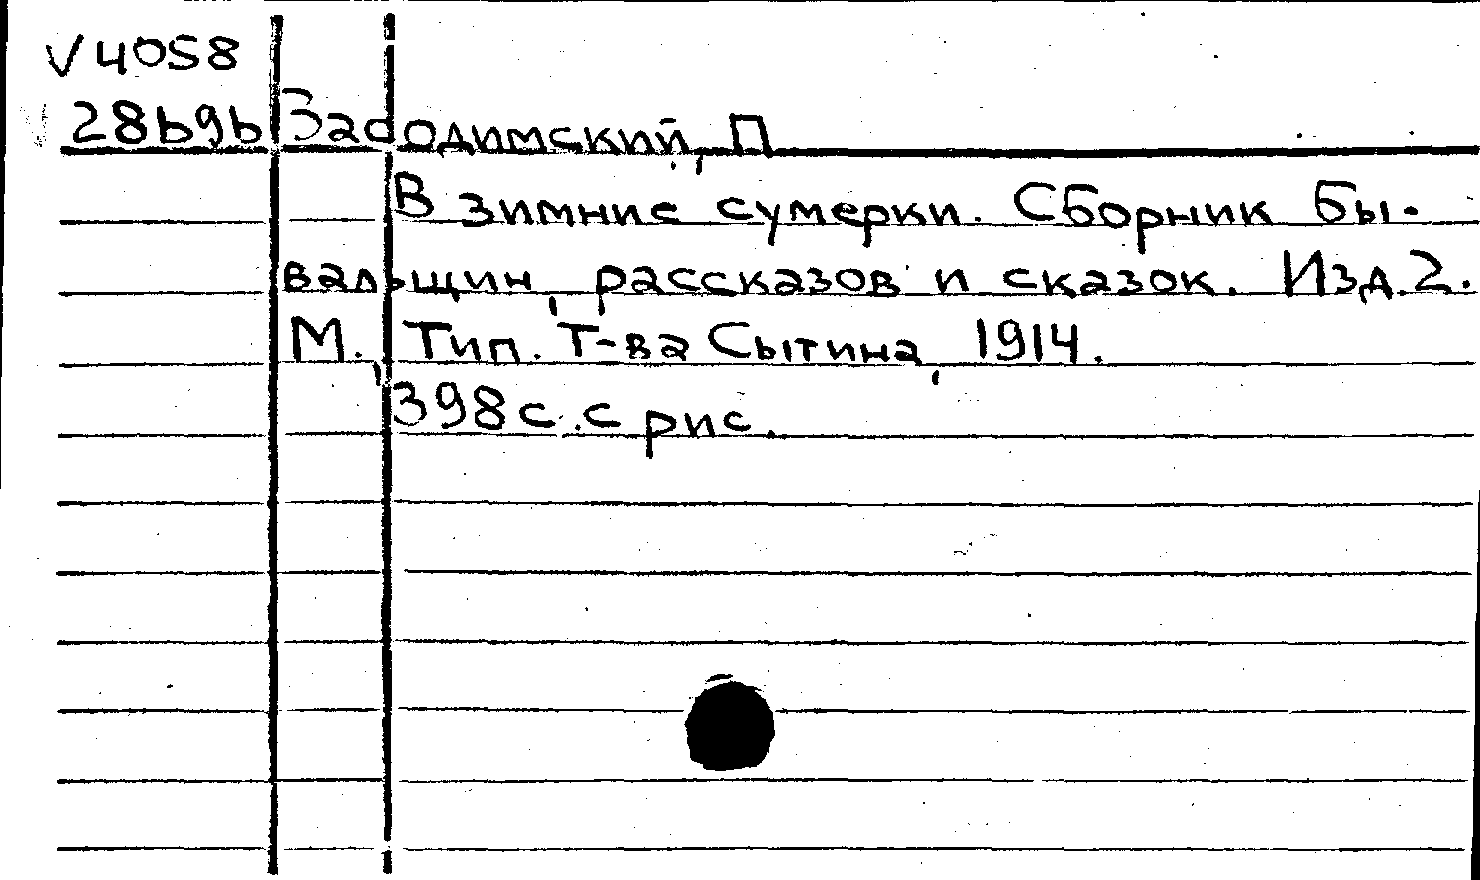 V 4058
28b9b Засодимский, П
В зимние сумерки. Сборник бы-
вальщин, рассказов и сказок. Изд. 2.
М., Тип. Т-ва Сытина, 1914.
398 с. с рис.